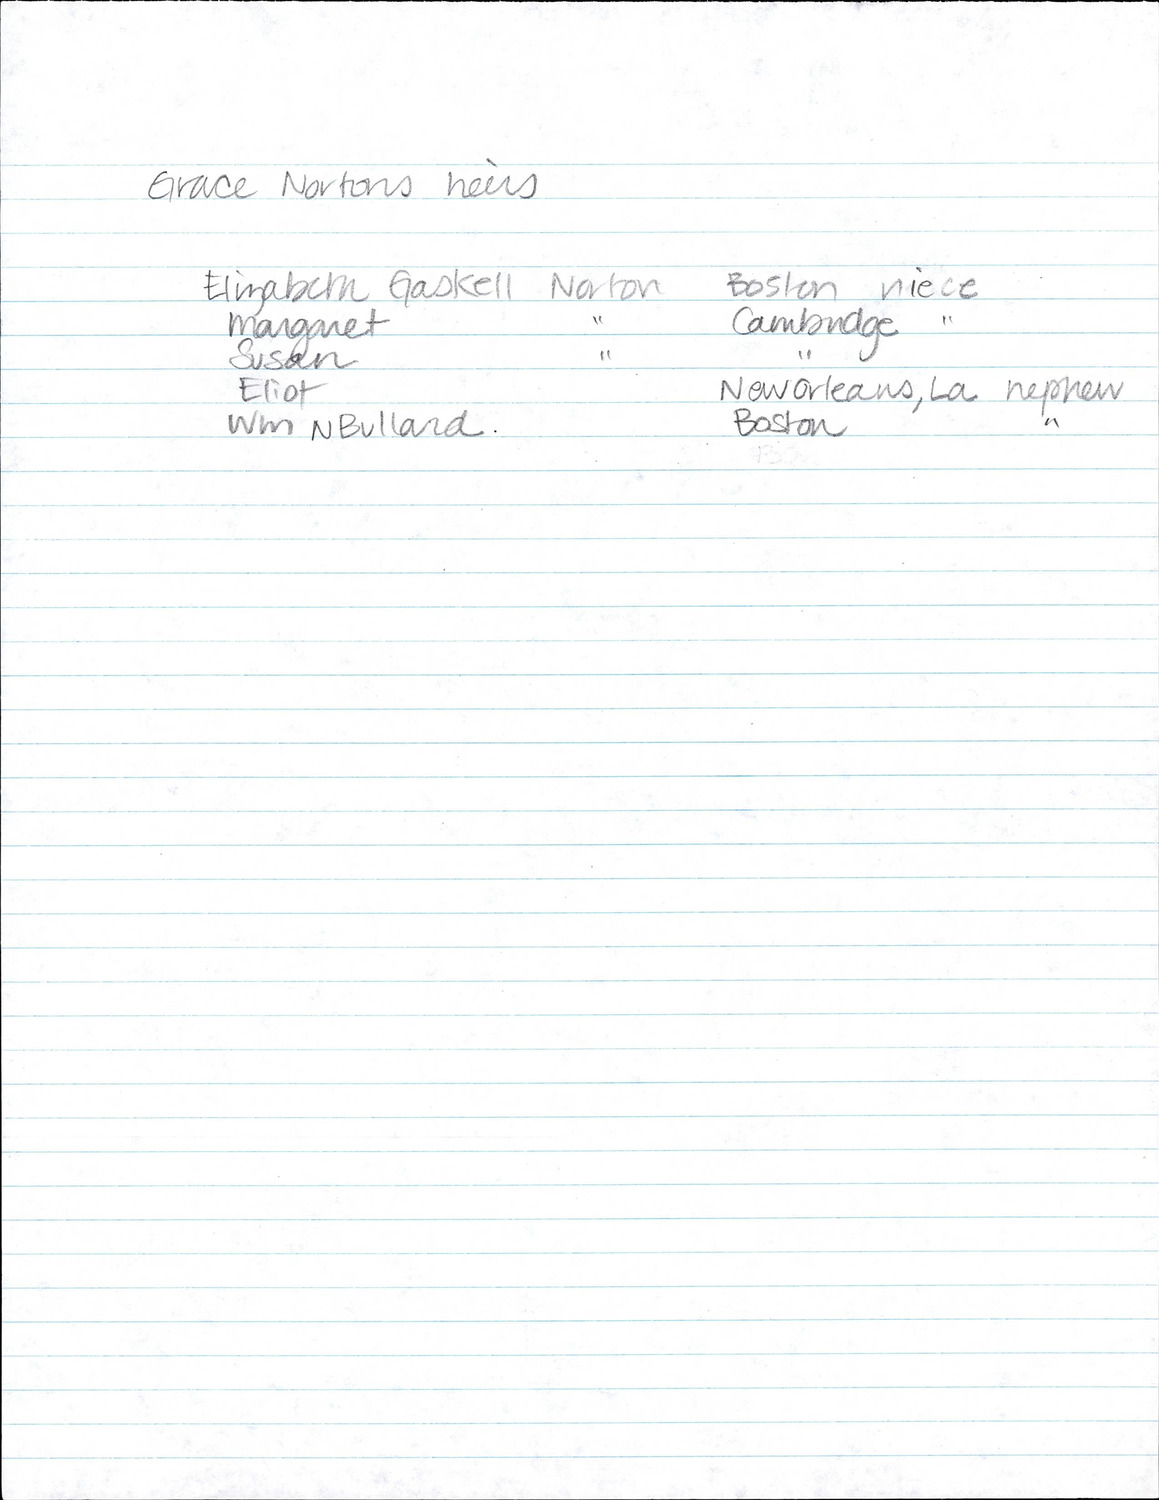 Grace Nortons heirs
Elizabeth Gaskell Norton Boston niece
Margaret " Cambridge "
Susan " "
Eliot New Orleans, La nephew
Wm N Bullard. Boston "